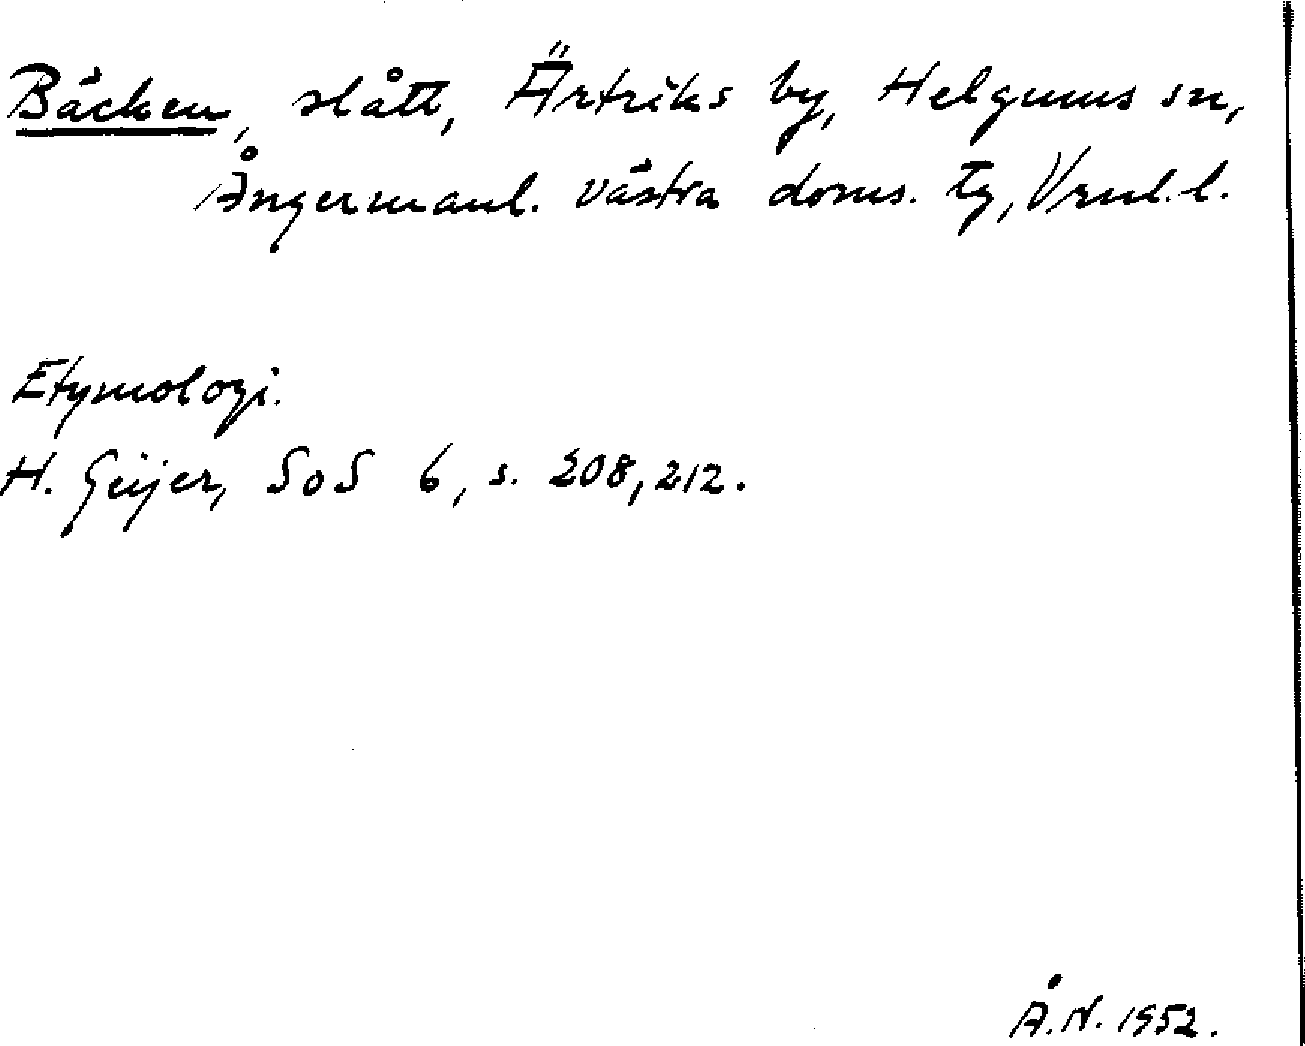 Bäcken, slått, Ärtriks by, Helgums sn,
Ångermanl. västra doms. tg, Vrnl. l.
Etymologi.
H. Geijer, SoS 6, s. 208, 212.
Å.N. 1952.